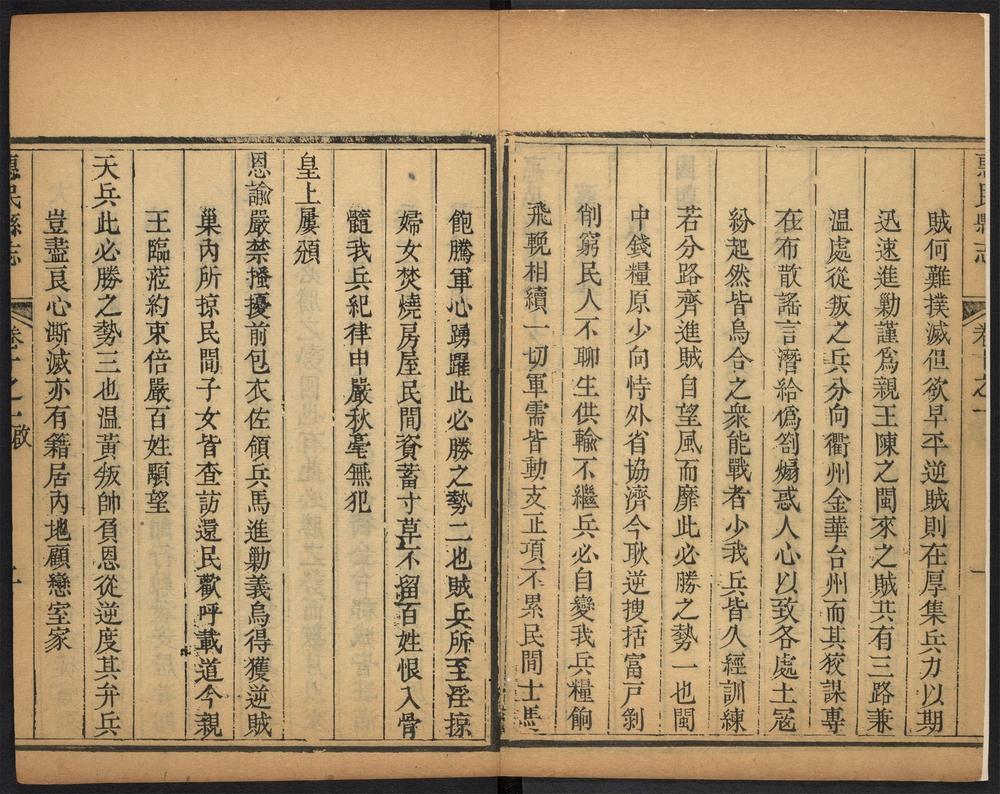 惠民縣志
卷十之一
賊何難撲滅但欲早平逆賊則在厚集兵力以期
迅速進勦謹爲親王陳之閩來之賊共有三路兼
温處從叛之兵分向衢州金華台州而其狡謀專
在布散謡言潛給僞劄煽惑人心以致各處土寇
紛起然皆烏合之衆能戰者少我兵皆久經訓練
若分路齊進賊自望風而靡此必勝之勢一也閩
中錢糧原少向恃外省協濟今耿逆搜括富戸剝
削窮民人不聊生供輸不繼兵必自變我兵糧餉
飛輓相續一切軍需皆動支正項不累民間士馬
飽騰軍心踴躍此必勝之勢二也賊兵所至淫掠
婦女焚燒房屋民間資蓄寸草不留百姓恨入骨
髓我兵紀律申嚴秋毫無犯
皇上屢頒
恩諭嚴禁搔擾前包衣佐領兵馬進勦義烏得獲逆賊
巢内所掠民間子女皆查訪還民歡呼載道今親
王臨蒞約束倍嚴百姓顒望
天兵此必勝之勢三也温黃叛帥負恩從逆度其弁兵
豈盡良心澌滅亦有籍居内地顧戀室家
惠民縣志
卷十之一啟